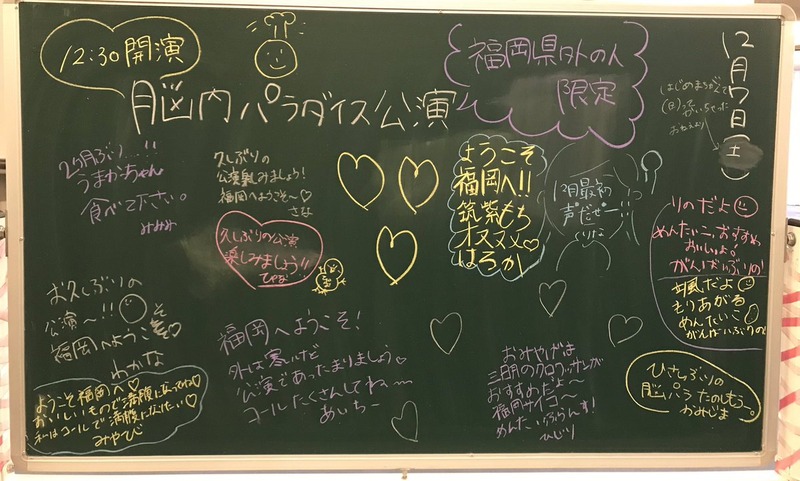 12:30 開演
脳内パラダイス公演
福岡県外の人
限定
12月7日(土)
はじめまちがえて
(日)って
かいちゃった
2ヶ月ぶり!!!
うまかっちゃん
食べて下さい。
みみみ
久しぶりの
公演楽しみましょう!
福岡へようこそ〜♡
さな
久しぶりの公演
楽しみましょう!!
ひなな
ようこそ
福岡へ!!
筑紫もち
オススメ♡
はるか
12月最初
声だせー!!
りな
りのだよ
めんたいこおすすめ
おいしいよ。
がんばいぶりのり
颯風だよ
もりあがる
めんたいこ
がんばいぶりのり
お久しぶりの
公演〜!!
福岡へようこそ♡
わかな
ようこそ福岡へ♡
おいしいもので満腹になってね♡
私はコールで満腹になりたい♡
みやび
福岡へようこそ!
外は寒いけど
公演であったまりましょう♡
コールたくさんしてね〜
めいちー
おみやげは
三日月のクロワッサンが
おすすめだよ〜
福岡サイコ〜
めんたいぶらんす!
ひじり
ひさしぶりの
脳パラたのしもう〜
かみじま